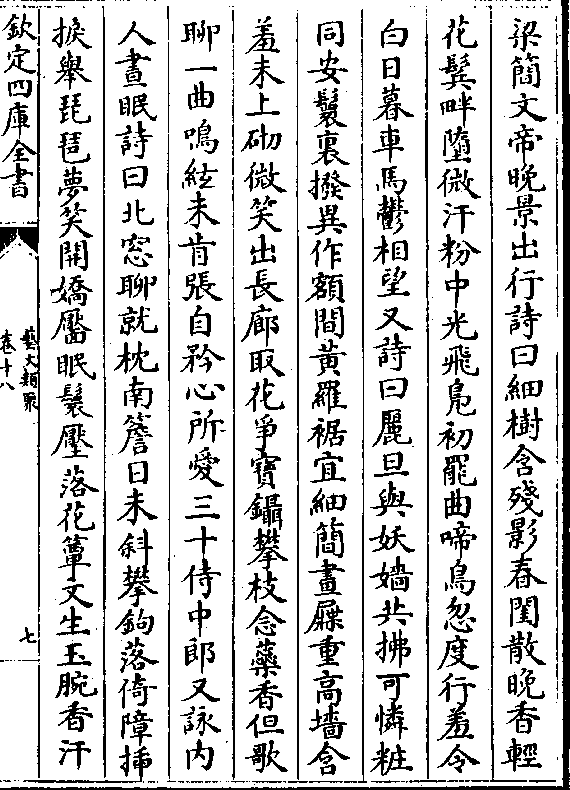 梁簡文帝晚景出行詩曰細樹含殘影春閨散晚香輕
花鬢畔墮微汗粉中光飛鳬初罷曲啼鳥忽度行羞令
白日暮車馬鬱相望又詩曰麗旦與妖嬙共拂可憐粧
同安鬟裏撥異作額間黃羅裾宜細簡畫屧重高墻含
羞未上砌微笑出長廊取花爭寶鑷攀枝念蘂香但歌
聊一曲鳴絃未肯張自矜心所愛三十侍中郎又詠内
人晝眠詩曰北窓聊就枕南簷日未斜攀鉤落倚障插
捩舉琵琶夢笑開嬌靨眠鬟壓落花簟文生玉腕香汗
欽定四庫全書
藝文類聚
卷十八
七